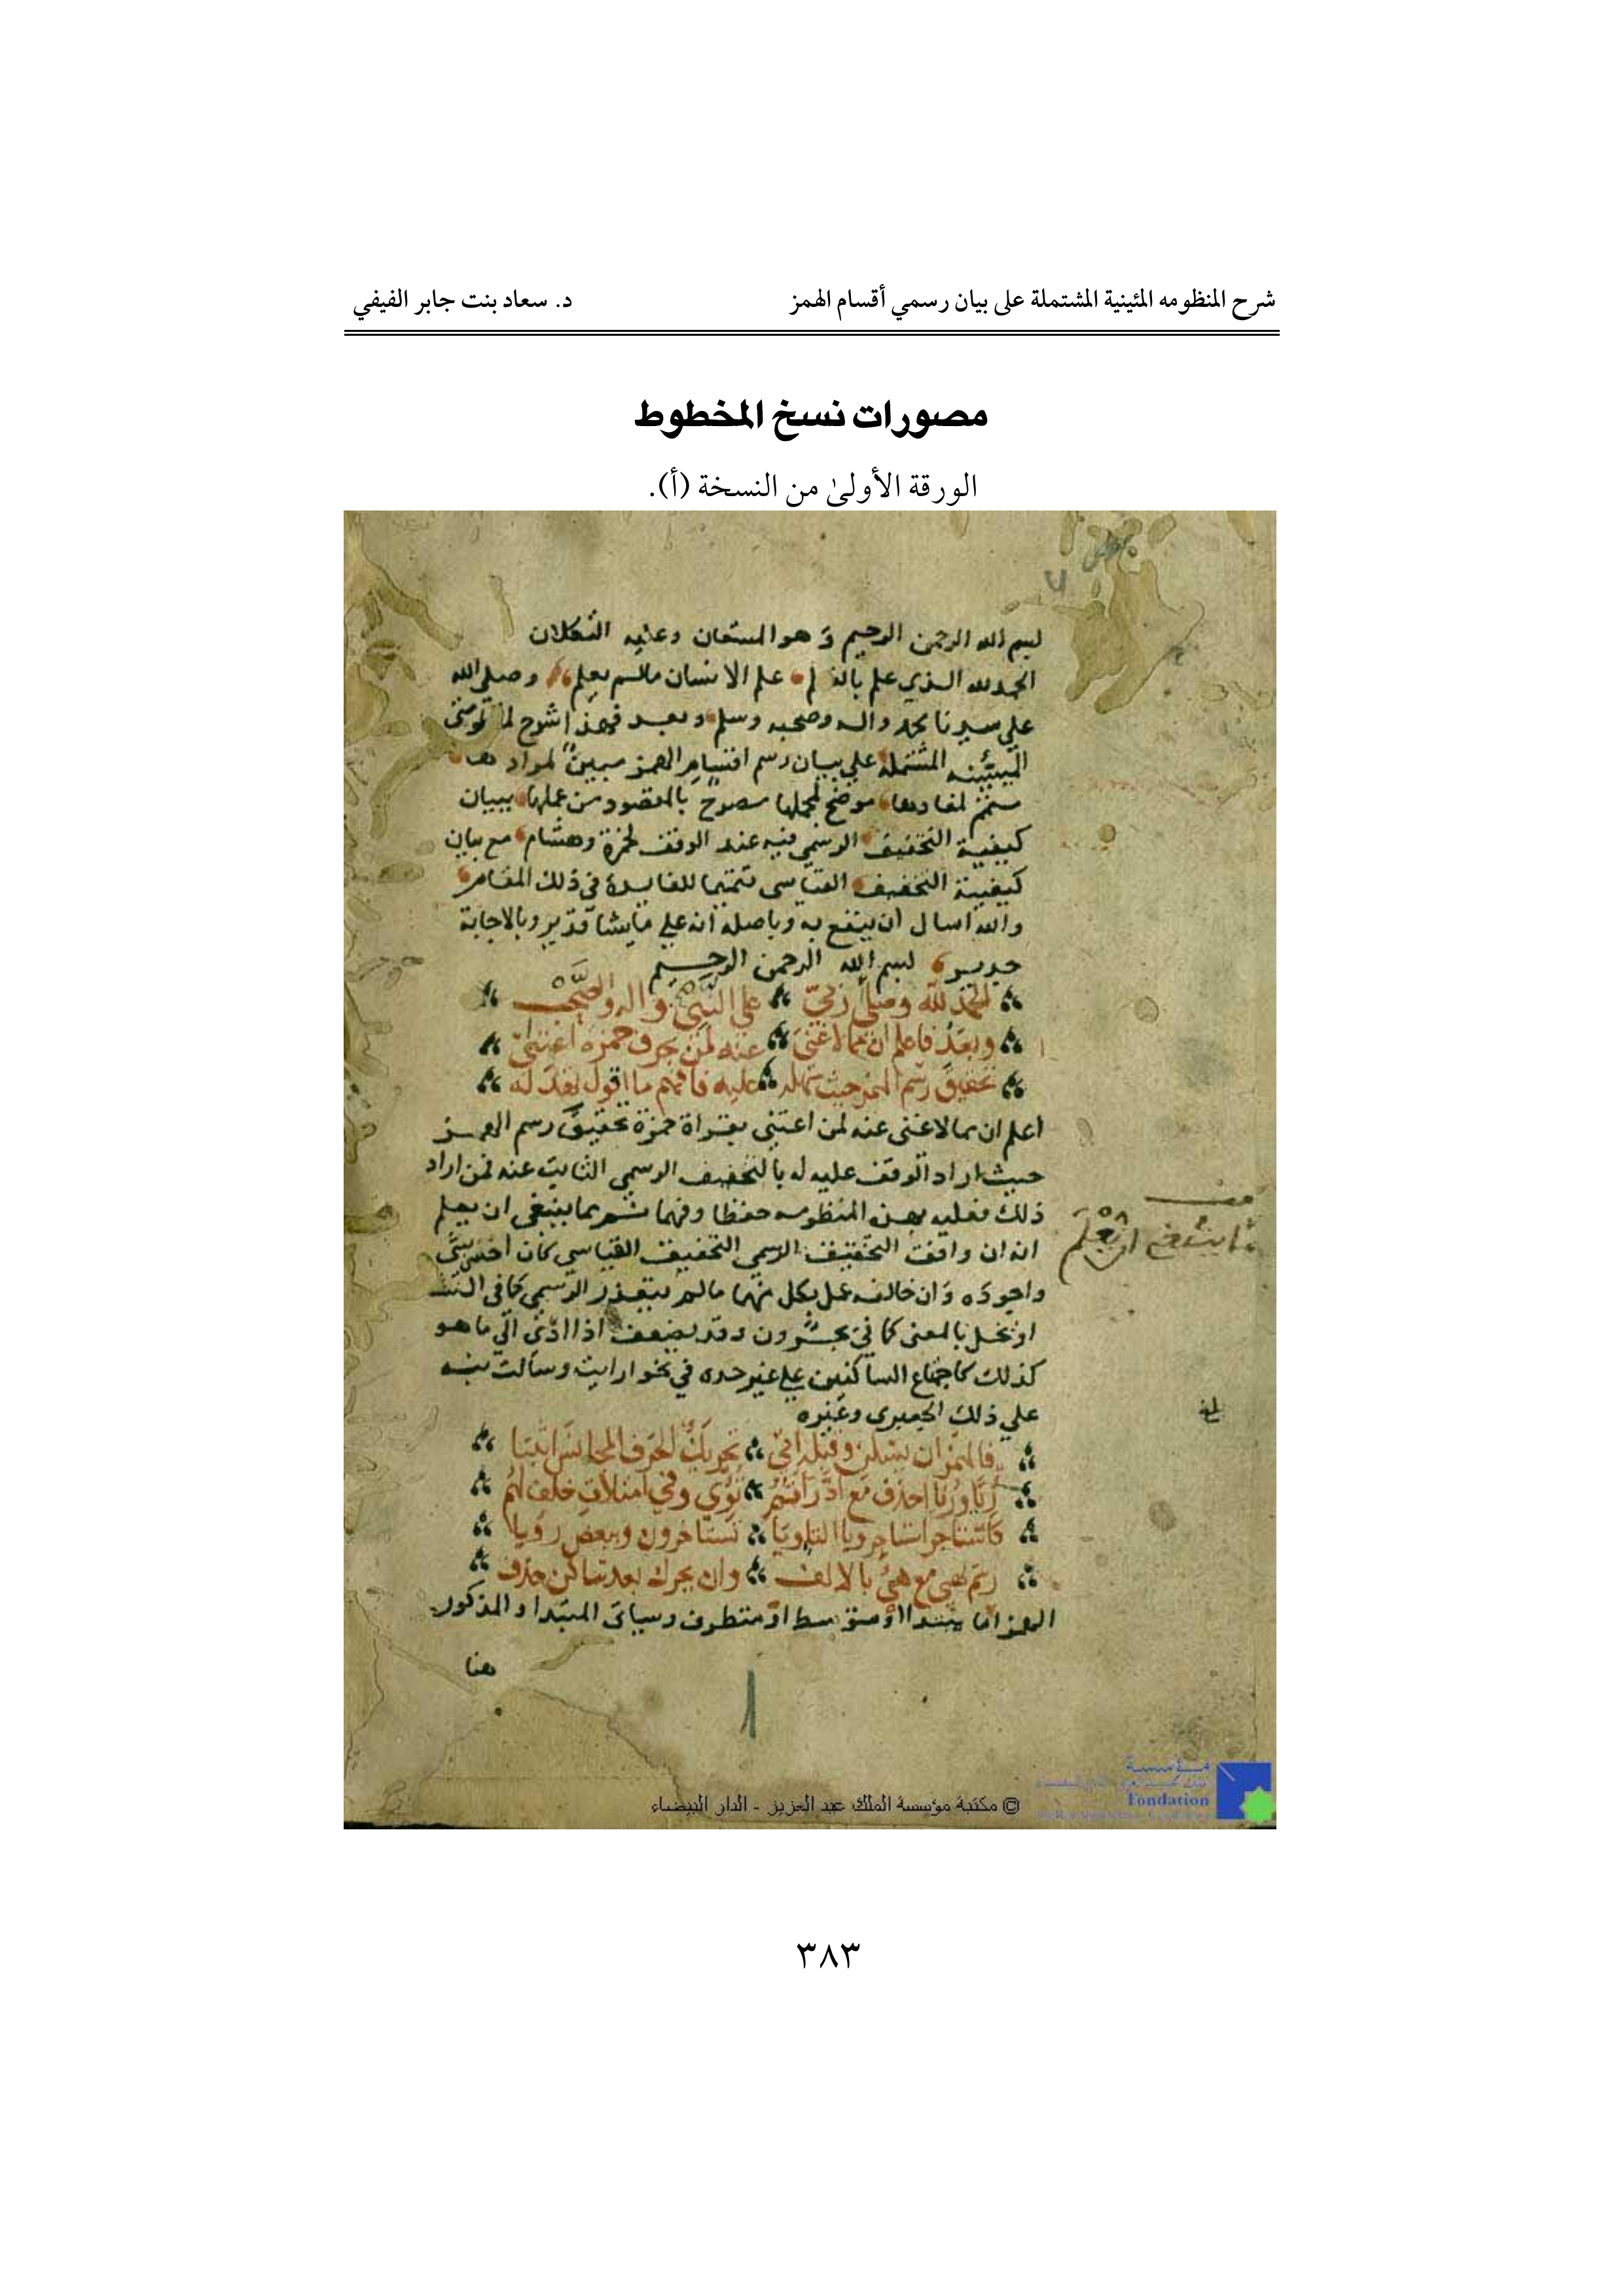 شرح المنظومه المئينية المشتملة على بيان رسمي أقسام الهمز
د. سعاد بنت جابر الفيفي
مصورات نسخ المخطوط
الورقة الأولىٰ من النسخة (أ).
٧
لبسم الله الرحمن الرحيم وهو المستعان وعليه التكلان
الحمد لله الذي علم بالقلم علم الانسان مالم يعلم وصلى الله
على سيدنا محمد واله وصحبه وسلم وبعد فهذا شرح
المشتملة على بيان رسم اقسام الهمز مبين لمراد ها
متمم لمفادها موضح لمجملها مصرح بالمقصود من عملها ببيان
كيفية التخفيف الرسمي فيه عند الوقف لحمزة وهشام مع بيان
كيفية التخفيف القياسي تتميما للفايدة في ذلك المقام
والله اسال ان ينفع به وباصله انه على ما يشا قدير وبالاجابة
جدير بسم الله الرحمن الرحيم
الحمد لله وصلى ربي على النبي واله والصحب
وبعد فاعلم ان مما لا غنى عنه لمن حرف حمزة اعتنى
تحقيق رسم الهمز حيث سهله عليه فافهم ما اقول بعد له
اعلم ان مما لا غنى عنه لمن اعتنى بقراة حمزة تحقيق رسم الهمز
حيث اراد الوقف عليه له بالتخفيف الرسمي الثابت عنه فمن اراد
ذلك فعليه بهذه المنظومه حفظا وفهما ثم مما ينبغي ان يعلم
انه ان وافق التخفيف الرسمي التخفيف القياسي كان احسن شي
واجوده وان خالفه عمل بكل منهما مالم يتعذر الرسمي كما في
او يخل بالمعنى كما في يجئرون وقد يضعف اذا ادى الى ما هو
كذلك كاجتماع الساكنين على غير حده في نحو ارايت وسالت نبه
على ذلك الجعبري وغيره
فالهمز ان يسكن وقبله اتى تحريك الحرف المجانس اثبتا
وفي امتلات خلف لهم
تستاخرون وبعض رؤيا
مع هيئ بالالف وان يحرك بعد ساكن حذف
الهمز اما مبتدا او متوسط او متطرف وسياتي المبتدا والمذكور
هنا
ما ينبغي ان يعلم
١
© مكتبة مؤسسة الملك عبد العزيز - الدار البيضاء
مؤسسة
Fondation
٣٨٣